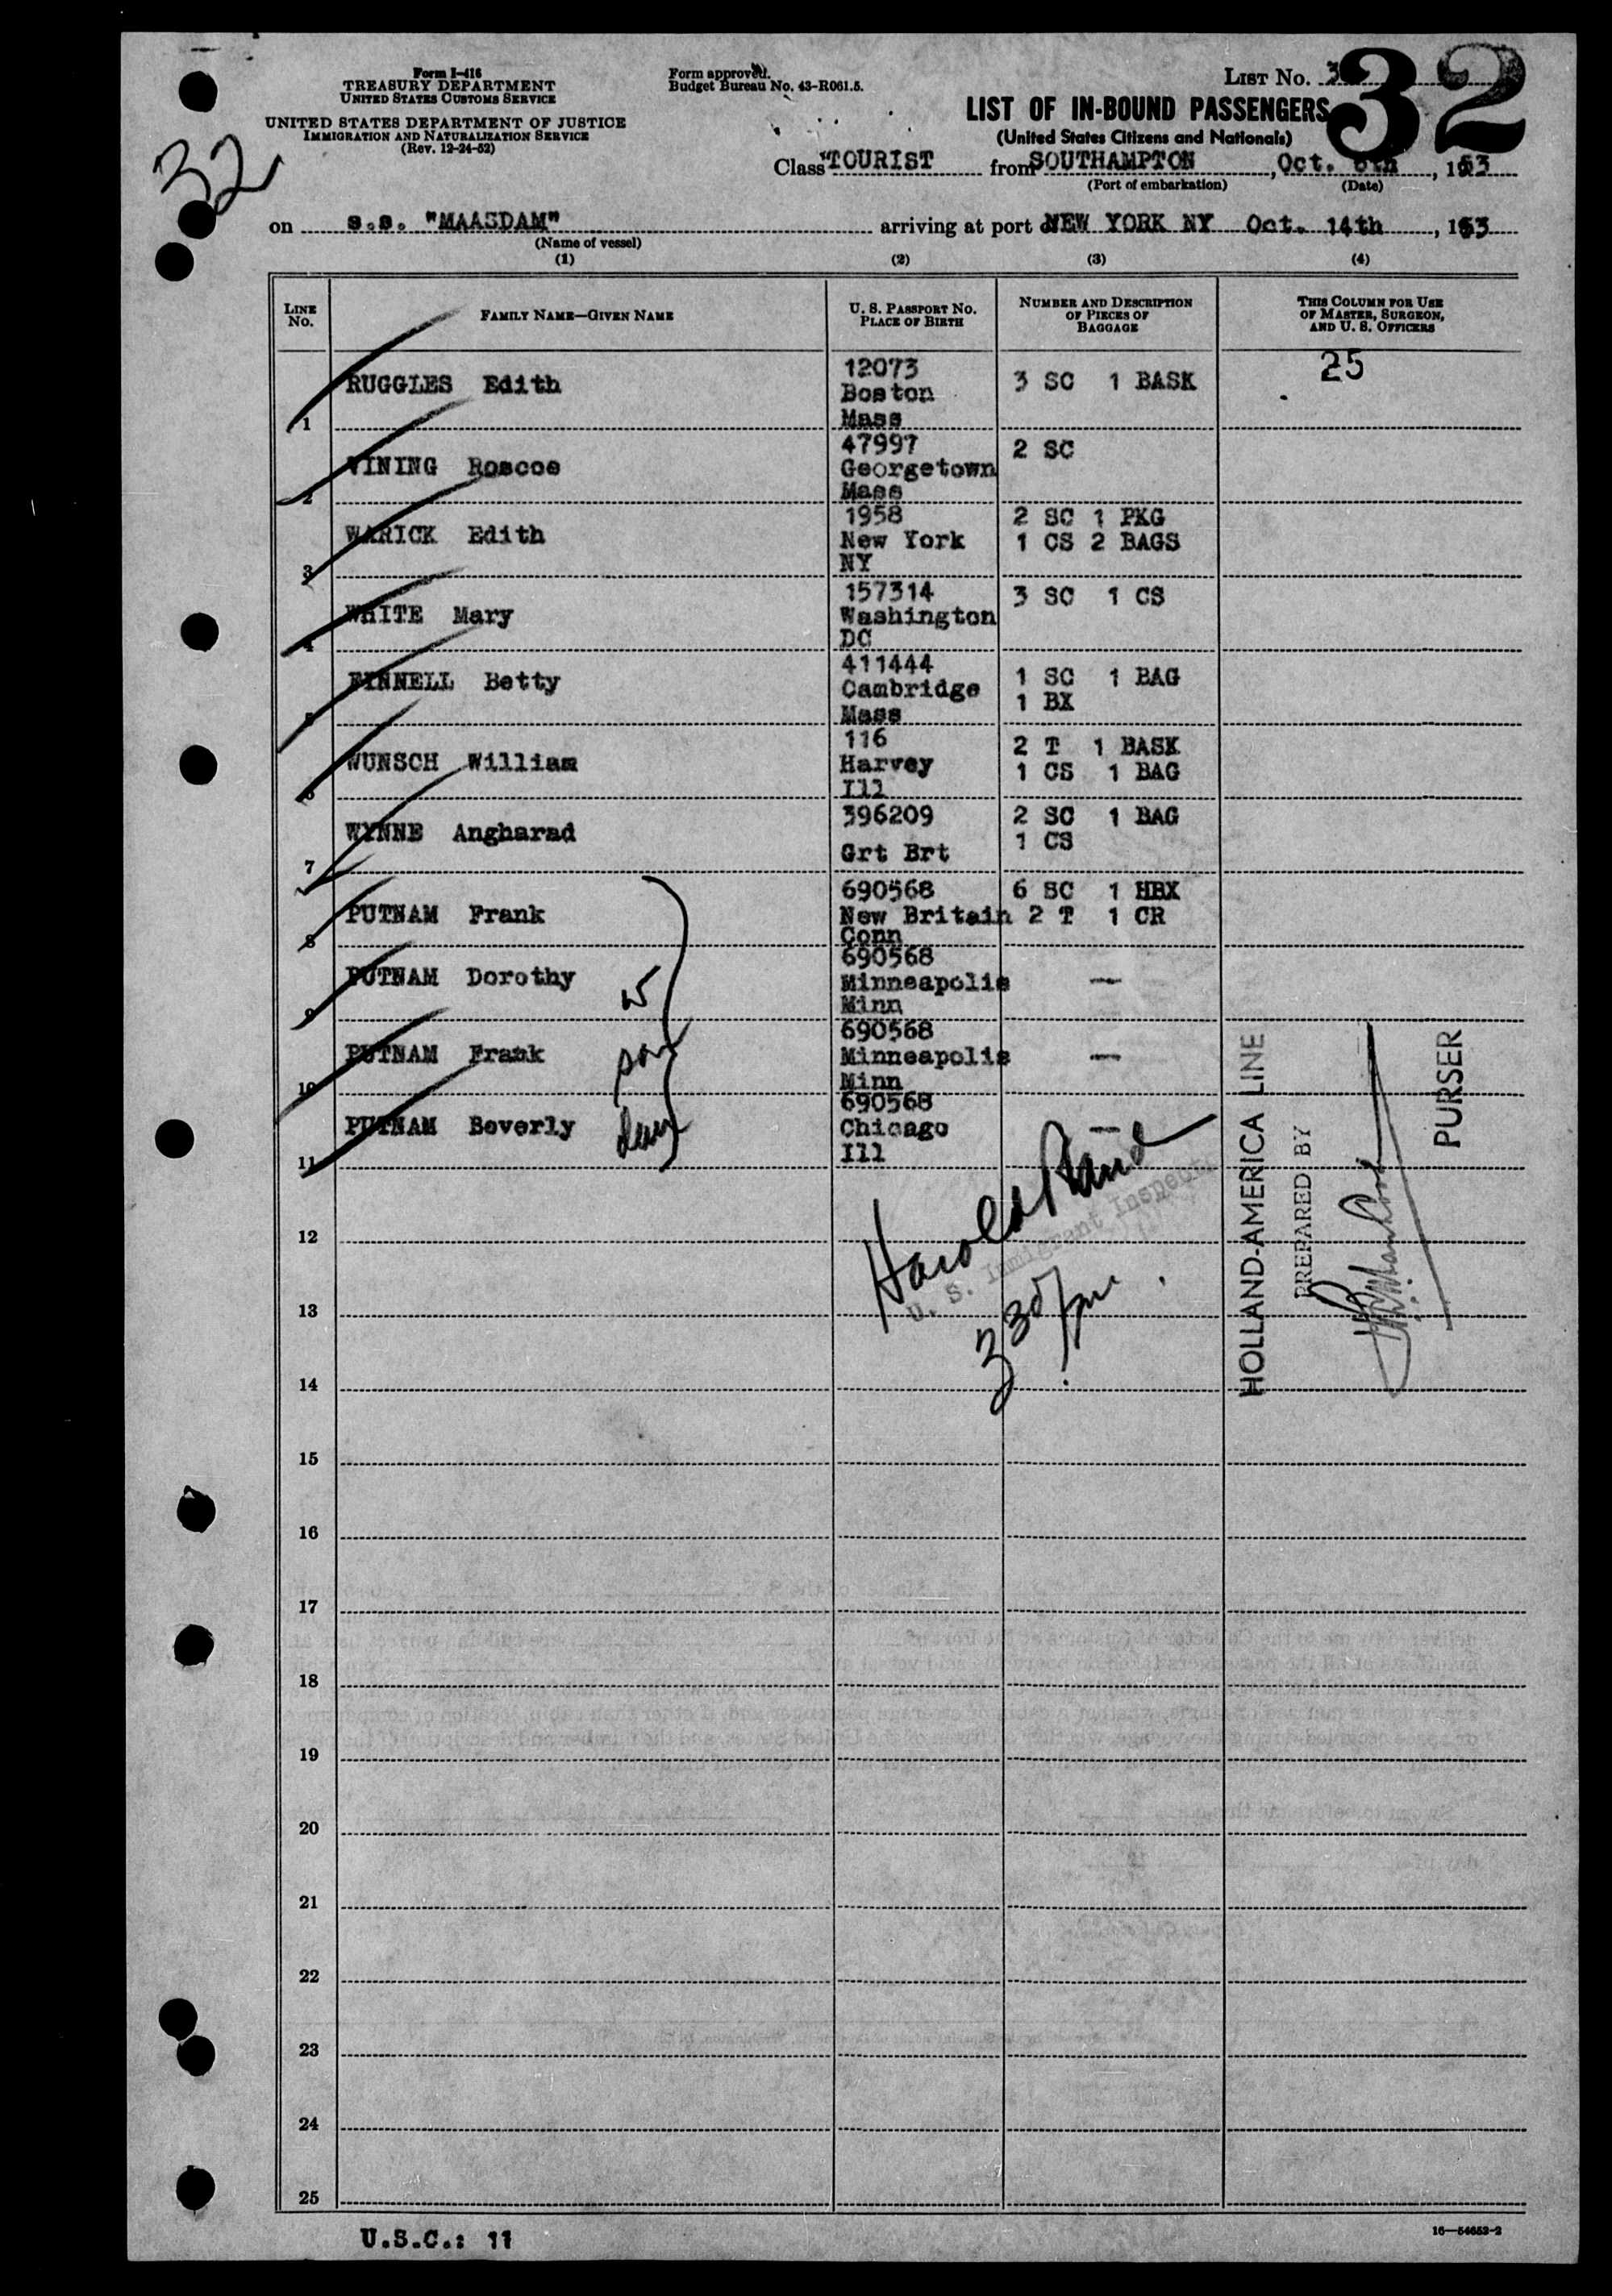 Form I-416
TREASURY DEPARTMENT
UNITED STATES CUSTOMS SERVICE
UNITED STATES DEPARTMENT OF JUSTICE
IMMIGRATION AND NATURALIZATION SERVICE
(Rev. 12-24-52)
Form approved.
Budget Bureau No. 43-R061.5.
LIST No. 3
32
32
LIST OF IN-BOUND PASSENGERS
(United States Citizens and Nationals)
Class TOURIST from SOUTHAMPTON, Oct. 6th, 1953
(Port of embarkation) (Date)
on s.s. "MAASDAM" arriving at port of NEW YORK NY Oct. 14th, 1953
(Name of vessel)
(1) (2) (3) (4)
LINE No.
FAMILY NAME—GIVEN NAME
U. S. PASSPORT No.
PLACE OF BIRTH
NUMBER AND DESCRIPTION
OF PIECES OF
BAGGAGE
THIS COLUMN FOR USE
OF MASTER, SURGEON,
AND U. S. OFFICERS
25
1 RUGGLES Edith 12073 Boston Mass 3 SC 1 BASK
2 VINING Roscoe 47997 Georgetown Mass 2 SC
3 WARICK Edith 1958 New York NY 2 SC 1 PKG 1 CS 2 BAGS
4 WHITE Mary 157314 Washington DC 3 SC 1 CS
5 FINNELL Betty 411444 Cambridge Mass 1 SC 1 BAG 1 BX
6 WUNSCH William 116 Harvey Ill 2 T 1 BASK 1 CS 1 BAG
7 WYNNE Angharad 396209 Grt Brt 2 SC 1 BAG 1 CS
8 PUTNAM Frank 690568 New Britain Conn 6 SC 1 HBX 2 T 1 CR
9 PUTNAM Dorothy w 690568 Minneapolis Minn —
10 PUTNAM Frank son 690568 Minneapolis Minn —
11 PUTNAM Beverly dau 690568 Chicago Ill —
Harold
U. S. Immigrant Inspector
3 30 pm
HOLLAND-AMERICA LINE
PREPARED BY
PURSER
12
13
14
15
16
17
18
19
20
21
22
23
24
25
U.S.C.: 11
16—54652-2